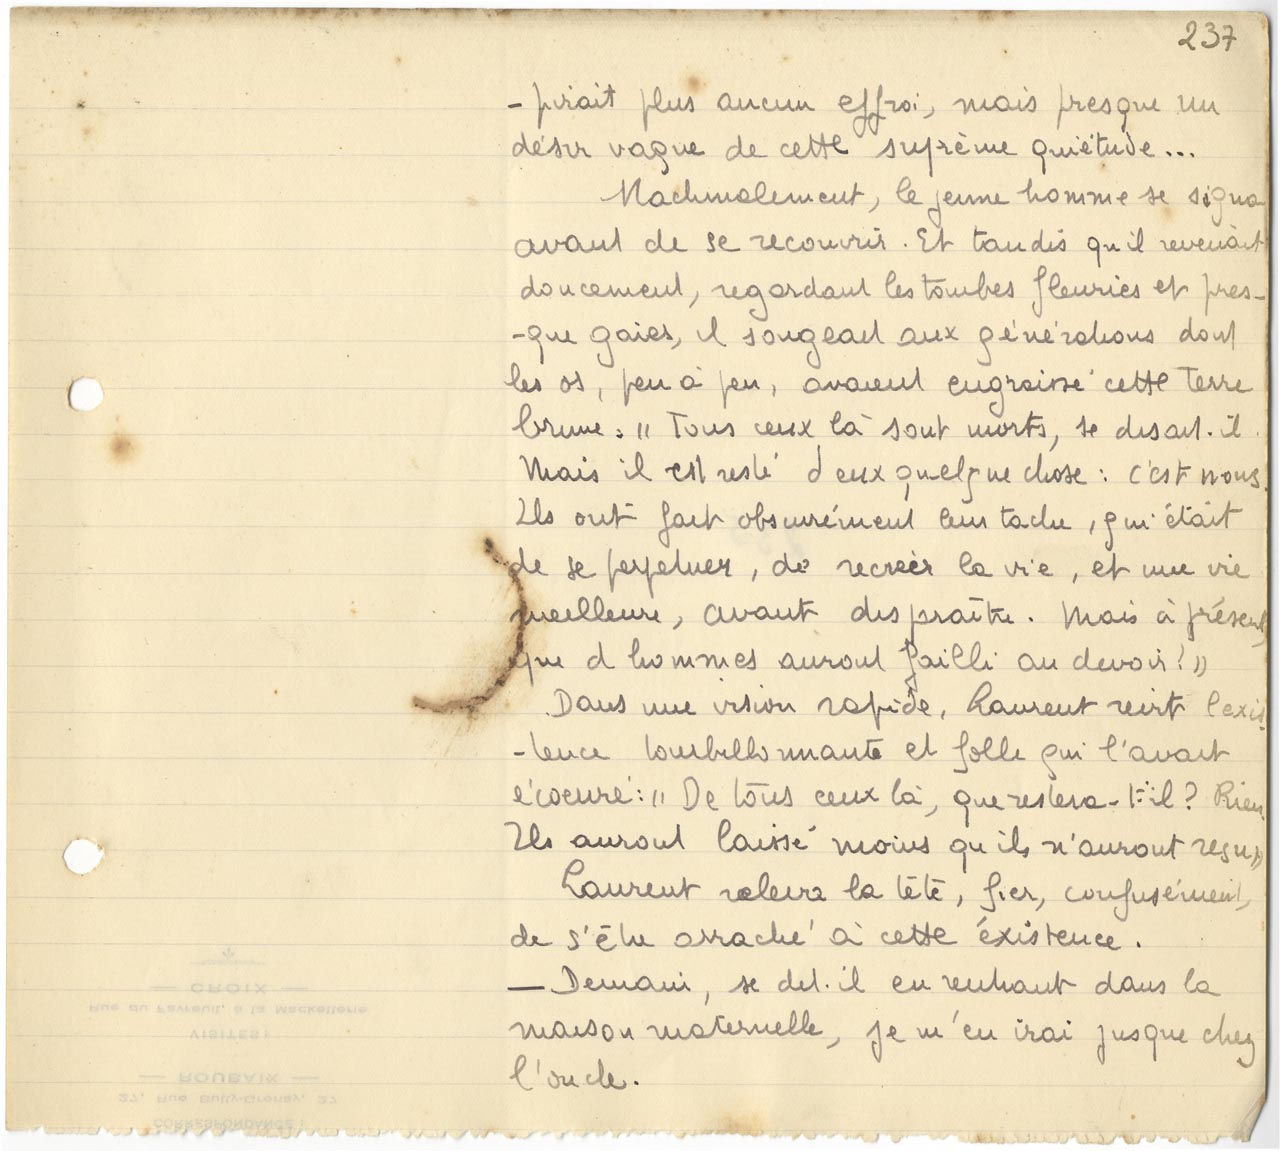 237
-pirait plus aucun effroi, mais presque un
désir vague de cette suprème quiétude...
Machinalement, le jeune homme se signa
avant de se recouvrir. Et tandis qu'il revenait
doucement, regardant les tombes fleuries et pres-
-que gaies, il songeait aux générations dont
les os, peu à peu, avaient engraissé cette terre
brune : " Tous ceux là sont morts, se disait-il.
Mais il est resté d'eux quelque chose : c'est nous.
Ils ont fait obscurément leur tache, qui était
de se perpétuer, de recréer la vie, et une vie
meilleure, avant dispraître. Mais à présent,
que d'hommes auront failli au devoir! "
Dans une vision rapide, Laurent revit l'exis-
-tence tourbillonnante et folle qui l'avait
écoeuré: " De tous ceux là, que restera-t-il ? Rien.
Ils auront laissé moins qu'ils n'auront reçu"
Laurent releva la tête, fier, confusément,
de s'être arraché à cette éxistence.
— Demain, se dit-il en rentrant dans la
maison maternelle, je m'en irai jusque chez
l'oncle.
— CROIX —
Rue du Favreuil, à la Mackellerie
VISITES :
— ROUBAIX —
27, Rue Bully-Grenay, 27
CORRESPONDANCE :